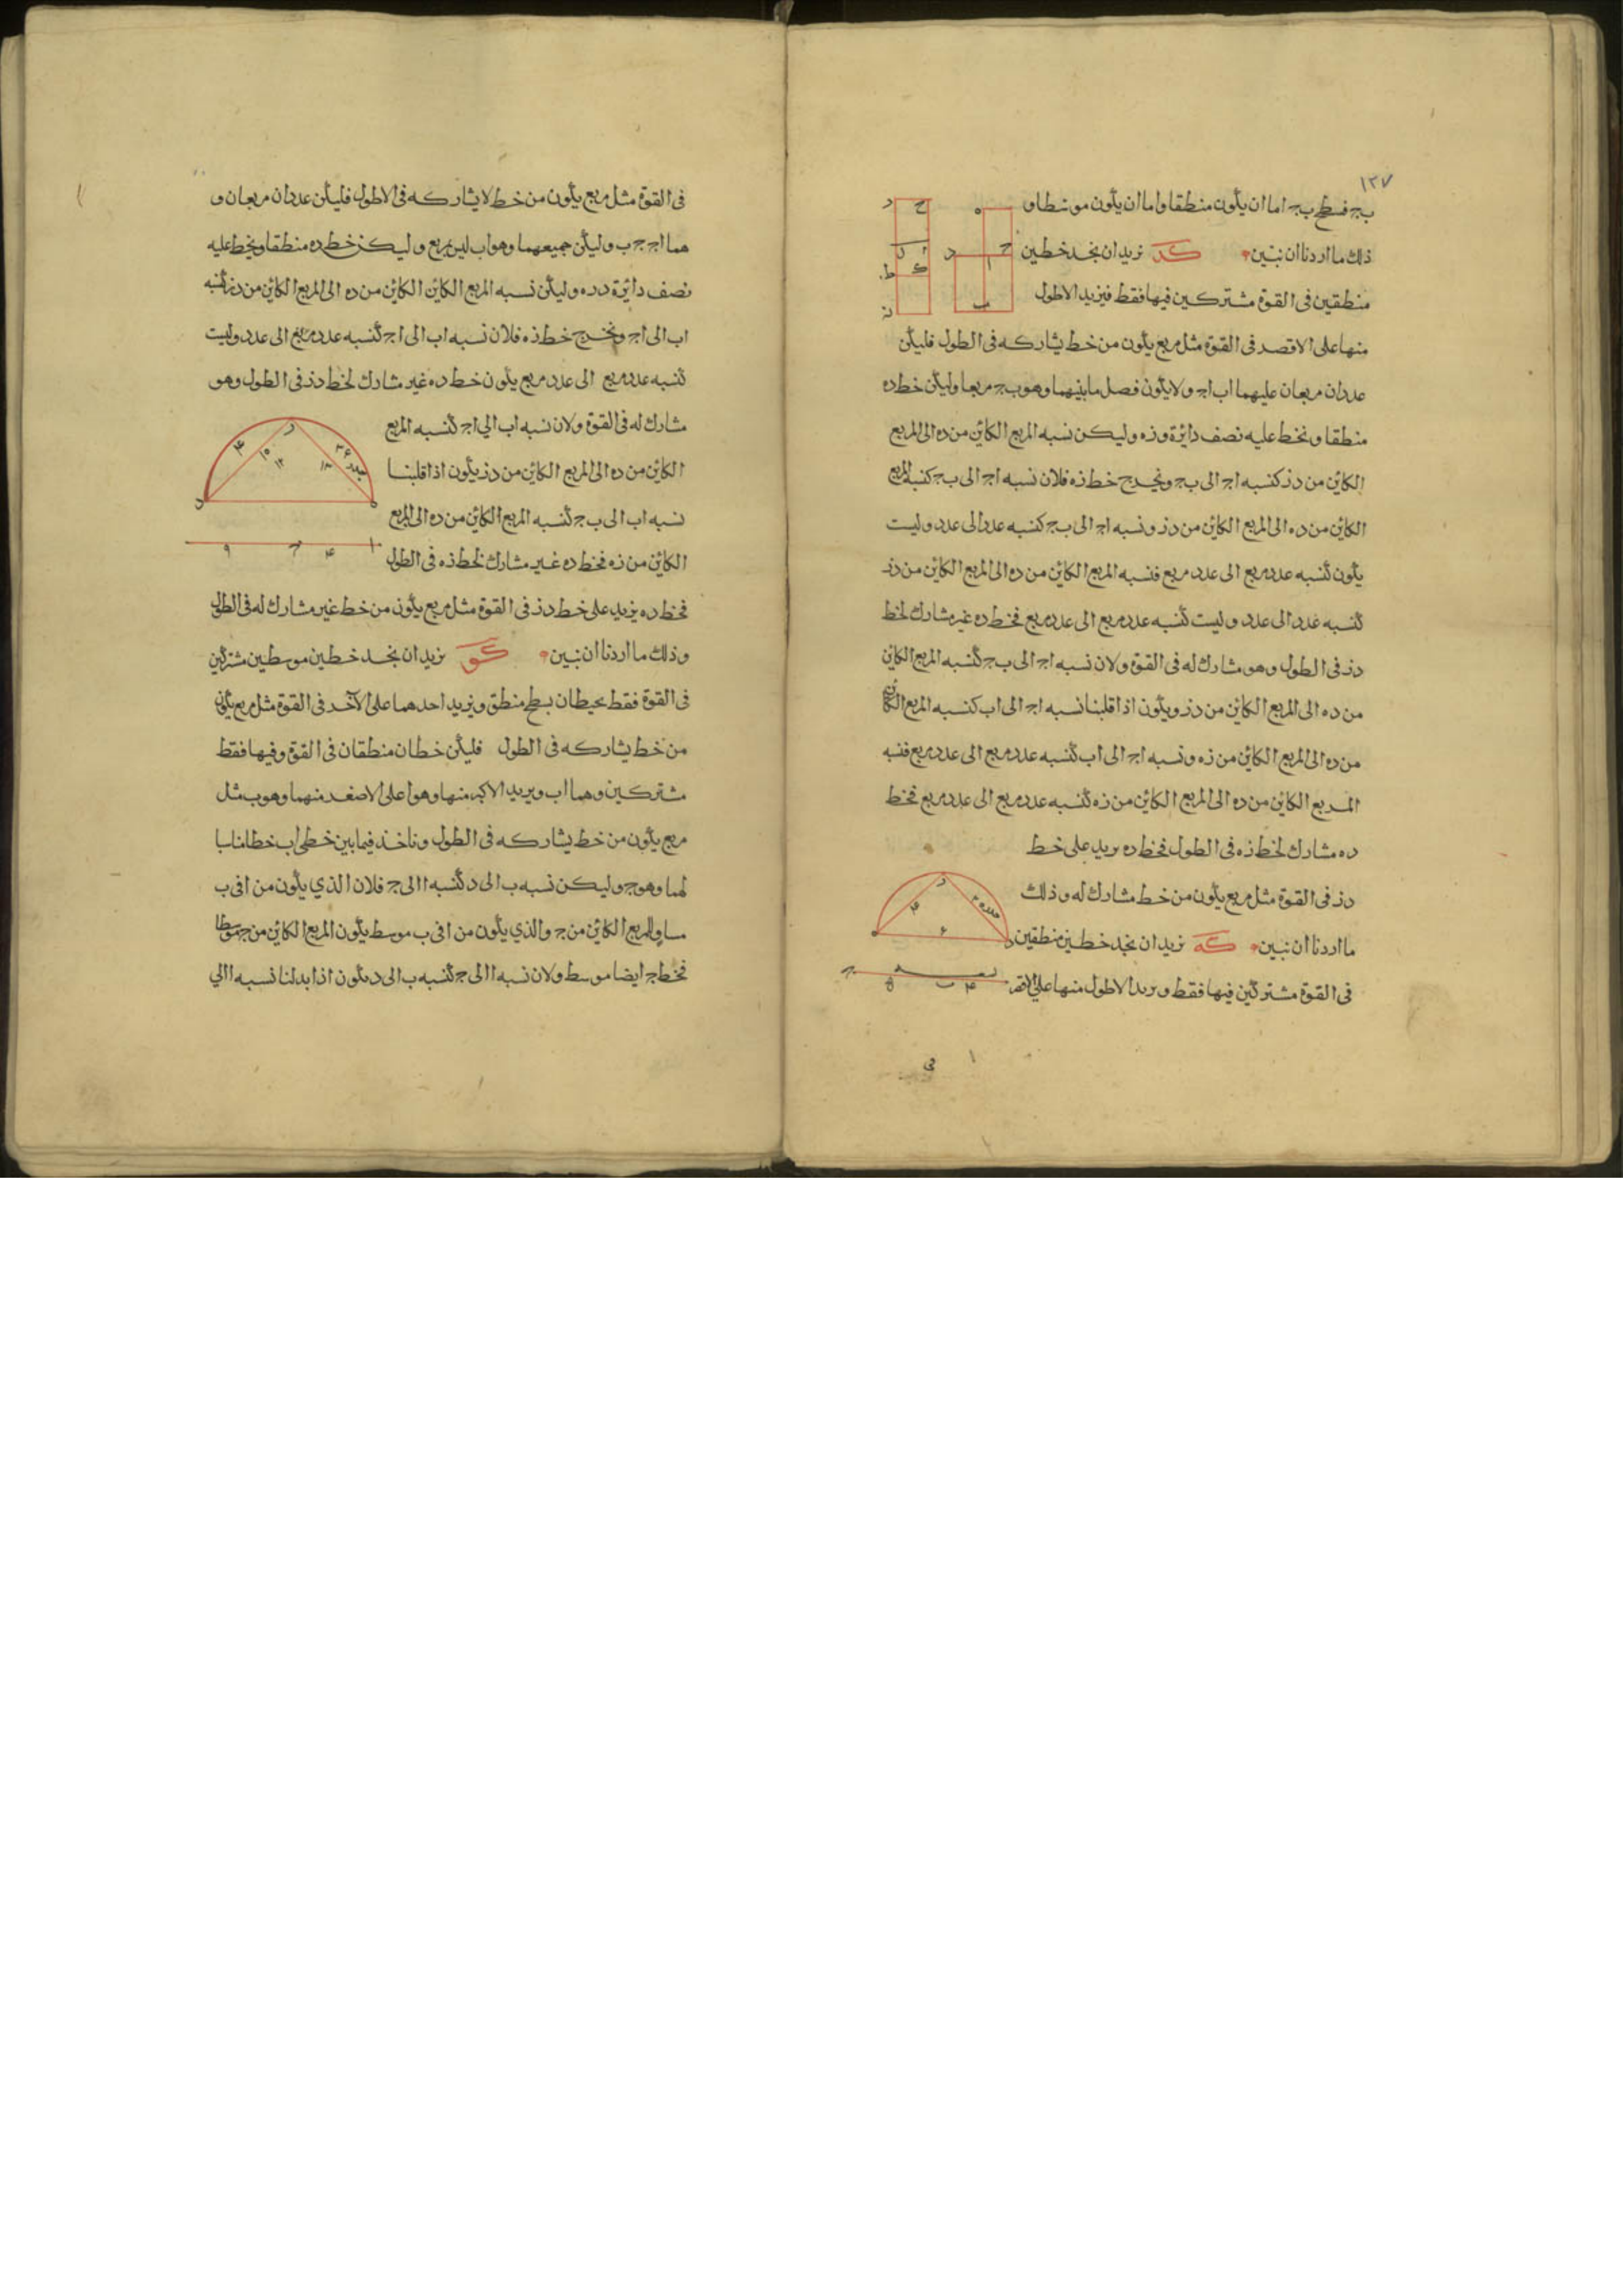 ١٢٧
ب ج فسطح ب ج اما ان يكون منطقا واما ان يكون موسطا و
ذلك ما اردنا ان نبين كد نريد ان نجد خطين
منطقين في القوة مشتركين فيها فقط فيزيد الاطول
منها على الاقصر في القوة مثل مربع يكون من خط يشاركه في الطول فليكن
عددان مربعان عليهما اب اج ولا يكون فصل ما بينهما وهو ب ج مربعا وليكن خط ده
منطقا ونخط عليه نصف دائرة وزه وليكن نسبه المربع الكائن من ده الى المربع
الكائن من دز كنسبه اج الى ب ج ونخرج خط زه فلان نسبه اج الى ب ج كنسبه المربع
الكائن من ده الى المربع الكائن من دز ونسبه اج الى ب ج كنسبه عدد الى عدد وليست
يكون كنسبه عدد مربع الى عدد مربع فنسبه المربع الكائن من ده الى المربع الكائن من دز
كنسبه عدد الى عدد وليست كنسبه عدد مربع الى عدد مربع فخط ده غير مشارك لخط
دز في الطول وهو مشارك له في القوة ولان نسبه اج الى ب ج كنسبه المربع الكائن
من ده الى المربع الكائن من دز ويكون اذا قلبنا نسبه اج الى اب كنسبه المربع الكائن
من ده الى المربع الكائن من زه ونسبه اج الى اب كنسبه عدد مربع الى عدد مربع فنسبه
المربع الكائن من ده الى المربع الكائن من زه كنسبه عدد مربع الى عدد مربع فخط
ده مشارك لخط زه في الطول فخط ده يزيد على خط
دز في القوة مثل مربع يكون من خط مشارك له وذلك
ما اردنا ان نبين كه نريد ان نجد خطين منطقين
في القوة مشتركين فيها فقط ويزيد الاطول منها على الاقصر
في القوة مثل مربع يكون من خط لا يشاركه في الاطول فليكن عددان مربعان و
هما اج ج ب وليكن جميعهما وهو اب ليس بمربع وليكن خط ده منطقا ونخط عليه
نصف دائرة دره وليكن نسبه المربع الكائن الكائن من ده الى المربع الكائن من دز كنسبه
اب الى اج ونخرج خط زه فلان نسبه اب الى اج كنسبه عدد مربع الى عدد وليست
كنسبه عدد مربع الى عدد مربع يكون خط ده غير مشارك لخط دز في الطول وهو
مشارك له في القوة ولان نسبه اب الي اج كنسبه المربع
الكائن من ده الى المربع الكائن من دز يكون اذا قلبنا
نسبه اب الى ب ج كنسبه المربع الكائن من ده الى المربع
الكائن من زه فخط ده غير مشارك لخط زه في الطول
فخط ده يزيد على خط دز في القوة مثل مربع يكون من خط غير مشارك له في الطول
وذلك ما اردنا ان نبين كو نريد ان نجد خطين موسطين مشتركين
في القوة فقط يحيطان بسطح منطق ويزيد احدهما على الآخر في القوة مثل مربع يكون
من خط يشاركه في الطول فليكن خطان منطقان في القوة وفيها فقط
مشتركين وهما اب ويزيد الاكبر منها وهو ا على الاصغر منهما وهو ب مثل
مربع يكون من خط يشاركه في الطول وناخذ فيما بين خطي اب خطا مناسبا
لهما وهو ج وليكن نسبه ب الى د كنسبه ا الى ج فلان الذي يكون من ا في ب
مساو للمربع الكائن من ج والذي يكون من ا في ب موسط يكون المربع الكائن من ج موسطا
فخط ج ايضا موسط ولان نسبه ا الى ج كنسبه ب الى د يكون اذا بدلنا نسبه ا الي